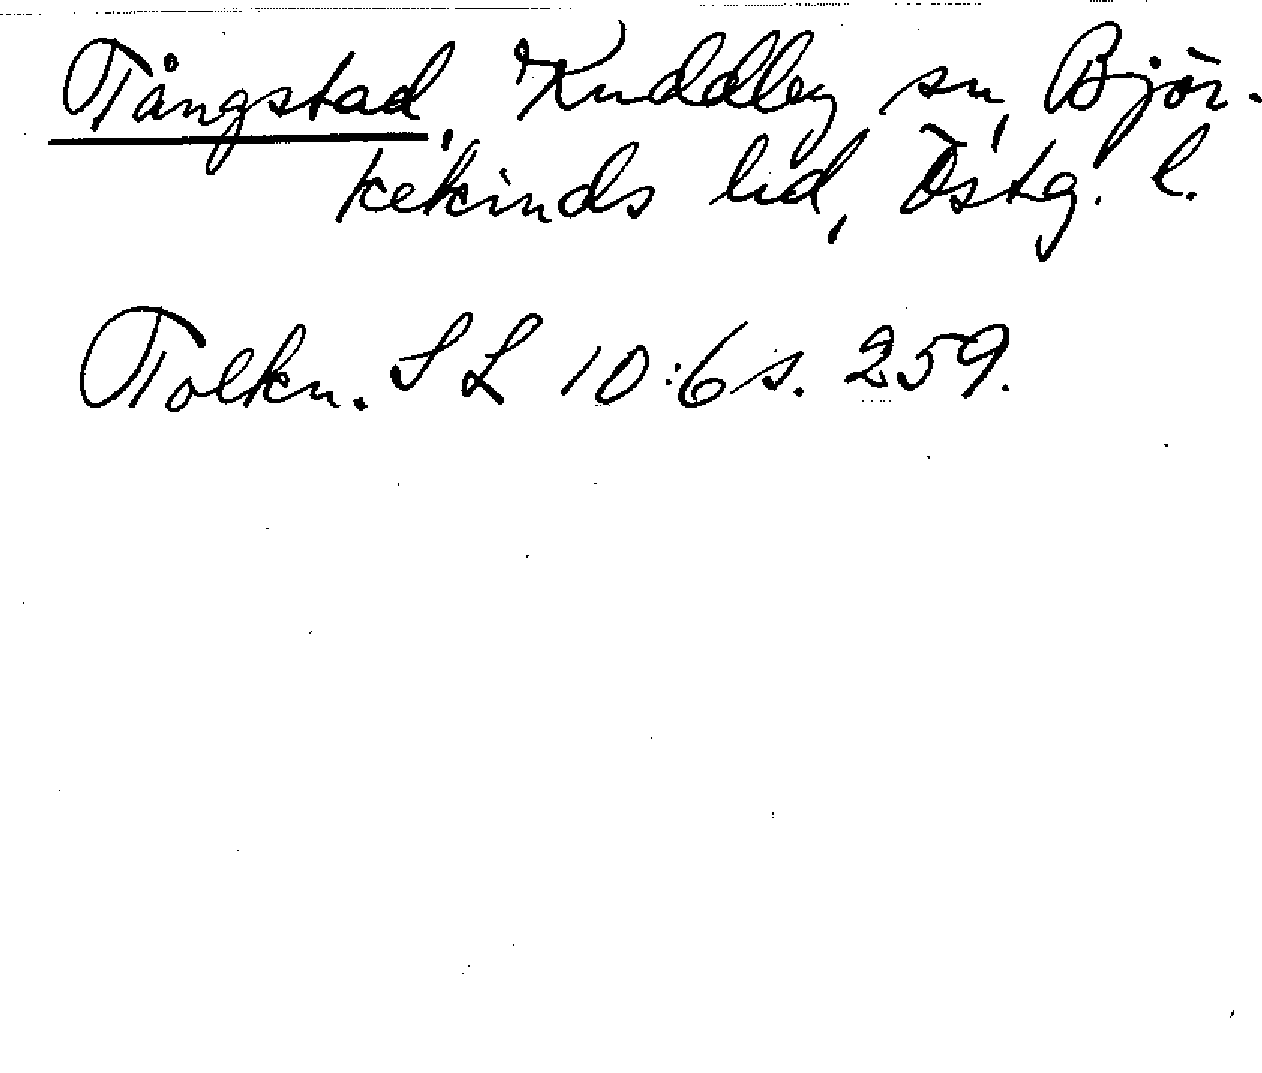 Tångstad, Kuddby sn, Björ-
kekinds hd, Östg. l.
Tolkn. SL 10:6 s. 259.